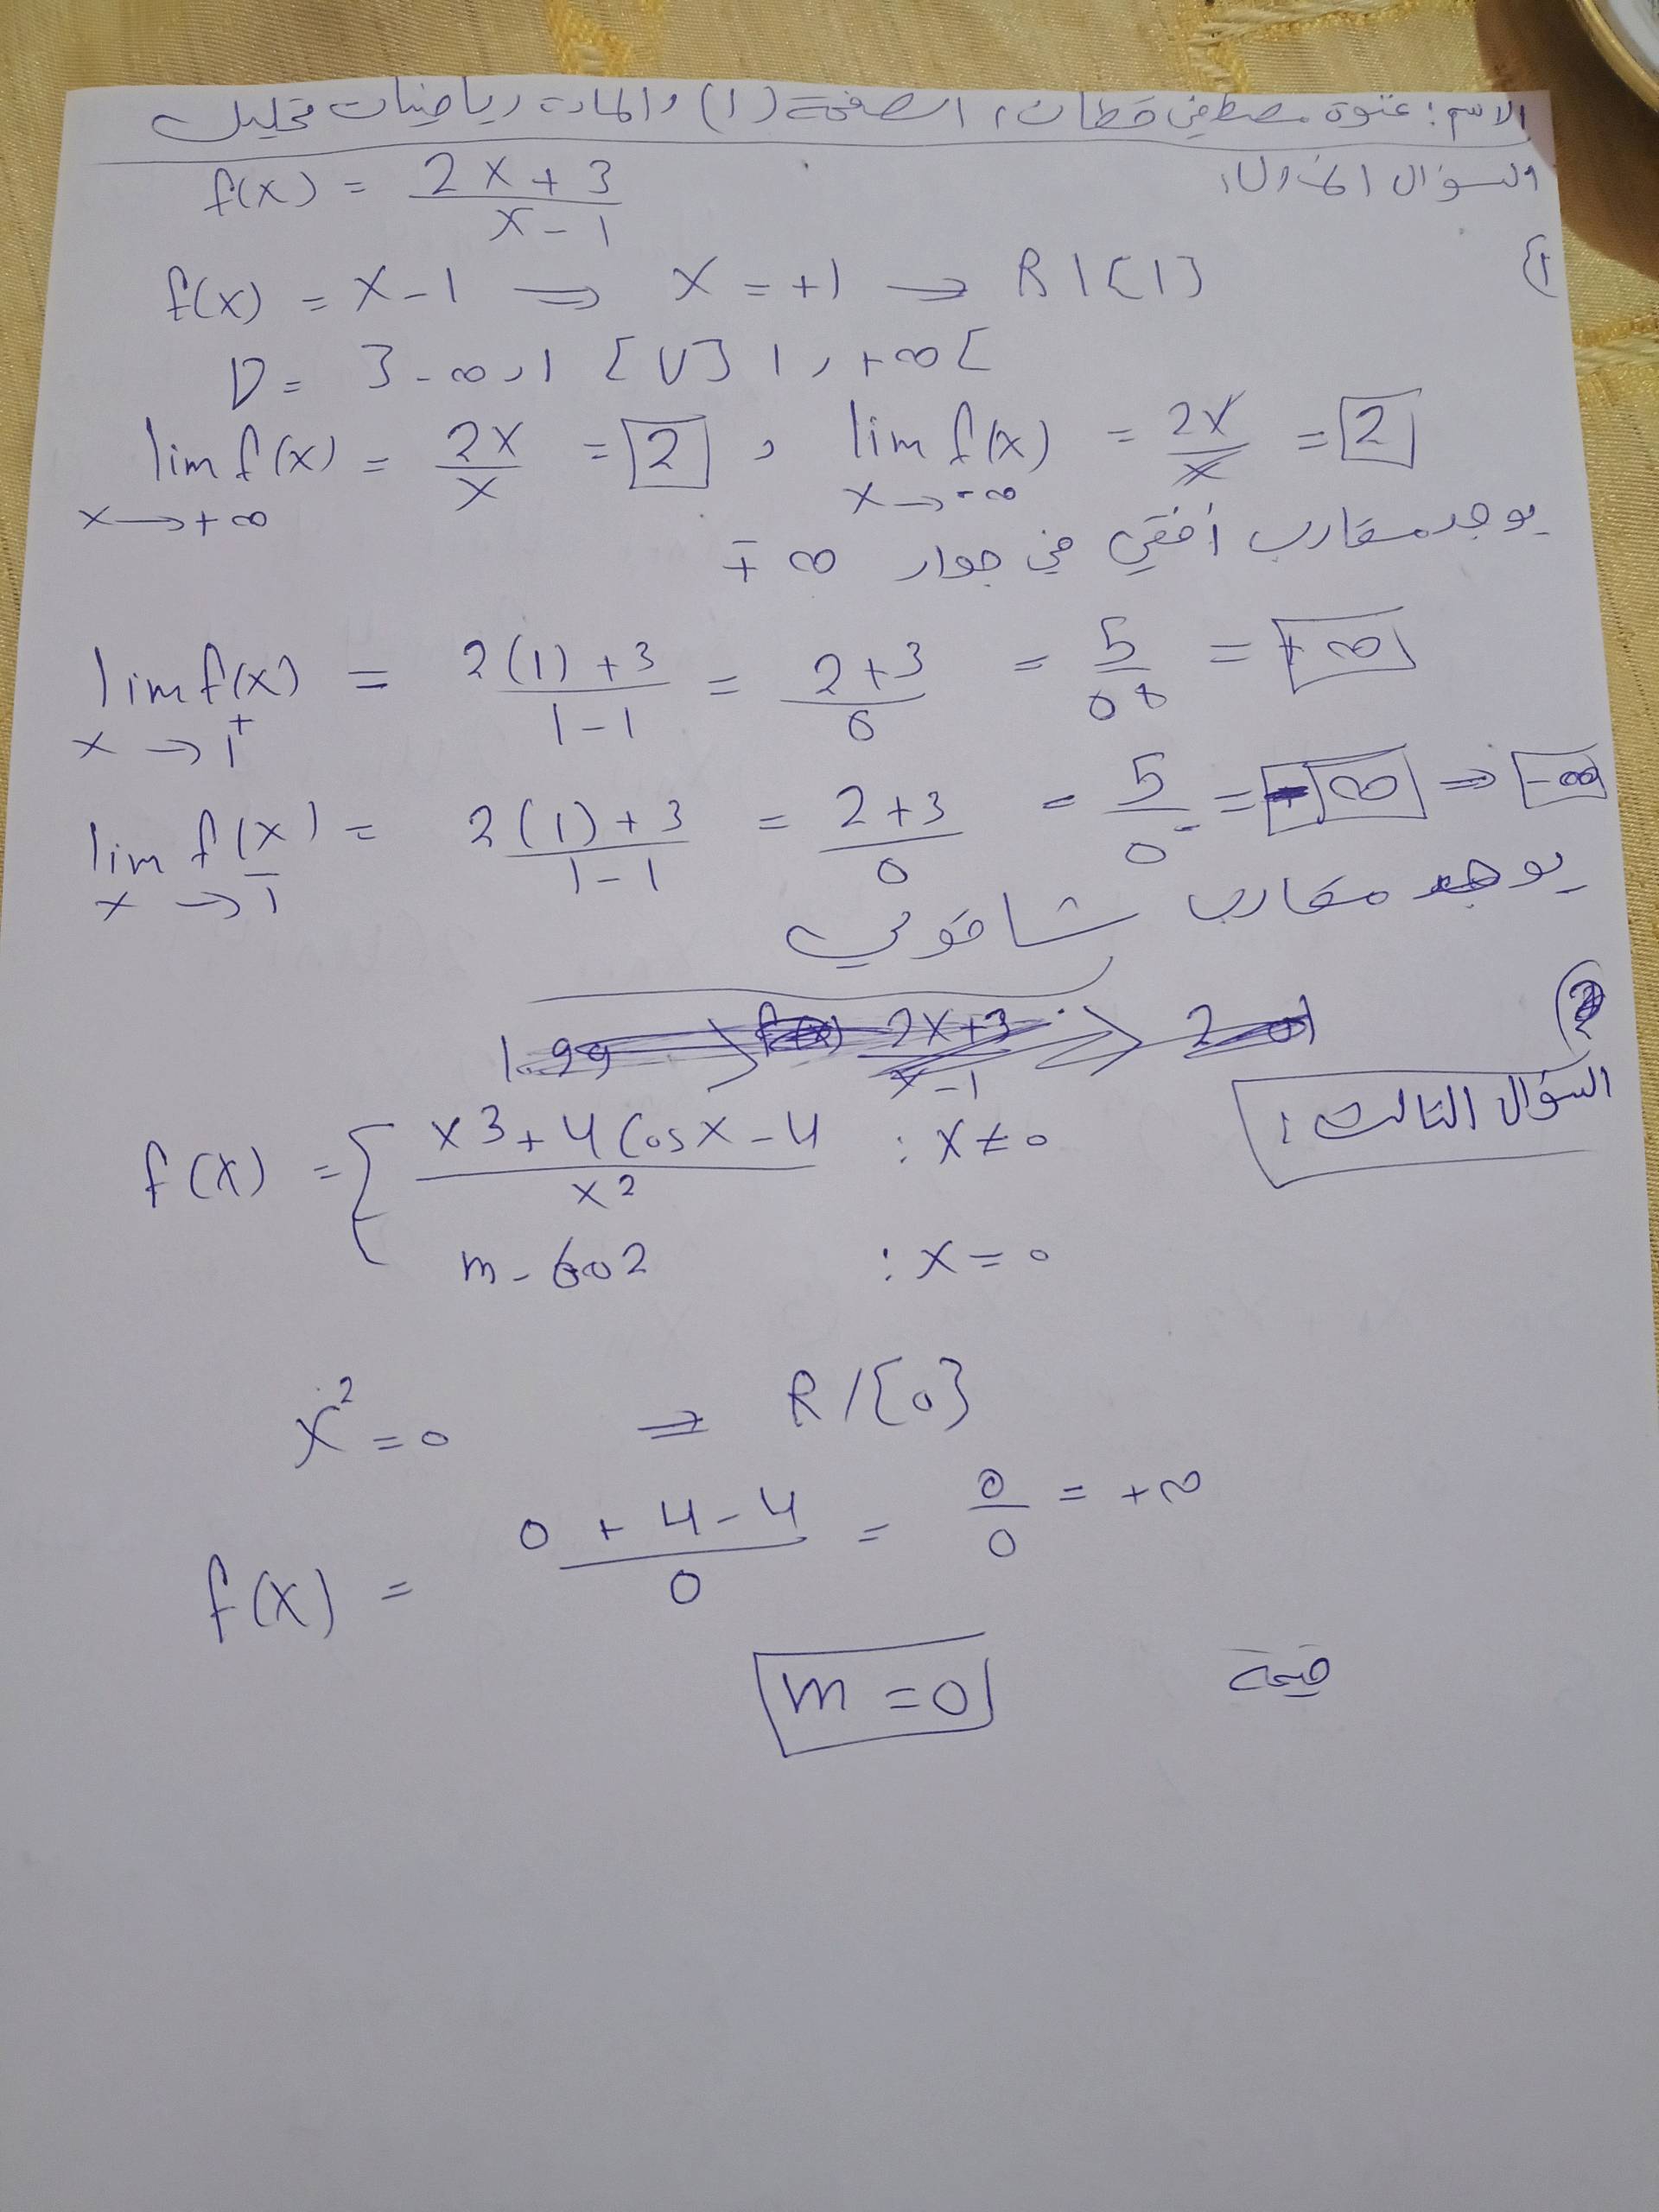 الاسم: غنوة مصطفى قطان، الصفحة (1) والمادة رياضيات تحليل
السؤال الأول:
f(x) = (2x+3)/(x-1)
1}
f(x) = x-1 ⇒ x = +1 → R\{1}
D = ]-∞, 1[ U ]1, +∞[
lim f(x) x→+∞ = 2x/x = 2 , lim f(x) x→-∞ = 2x/x = 2
يوجد مقارب أفقي في جوار ∓∞
lim f(x) x→1⁺ = (2(1)+3)/(1-1) = (2+3)/0 = 5/0⁺ = +∞
lim f(x) x→1⁻ = (2(1)+3)/(1-1) = (2+3)/0 = 5/0⁻ = -∞ ⇒ -∞
يوجد مقارب شاقولي
2
1.99 > f(x) (2x+3)/(x-1) > 2.01
السؤال الثالث:
f(x) = { (x3+4cosx-4)/x2 : x≠0
m-602 : x=0
x² = 0 ⇒ R/{0}
f(x) = (0+4-4)/0 = 0/0 = +∞
قيمة m = 0